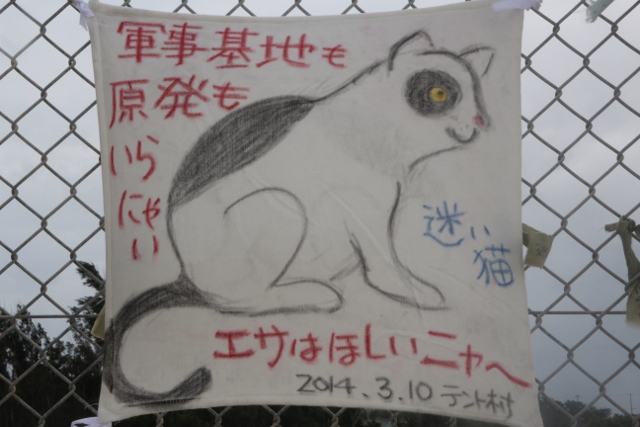 軍事基地も
原発も
いら
にゃい
迷い
猫
エサはほしいニャヘ
2014.3.10 テント村